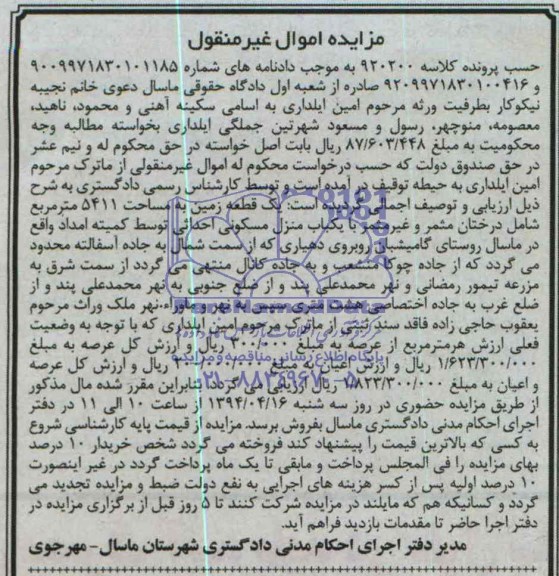 مزایده اموال غیرمنقول
حسب پرونده کلاسه ۹۲۰۲۰۰ به موجب دادنامه های شماره ۹۰۰۹۹۷۱۸۳۰۱۰۱۱۸۵
و ۹۲۰۹۹۷۱۸۳۰۱۰۰۴۱۶ صادره از شعبه اول دادگاه حقوقی ماسال دعوی خانم نجیبه
نیکوکار بطرفیت ورثه مرحوم امین ایلداری به اسامی سکینه آهنی و محمود، ناهید،
معصومه، منوچهر، رسول و مسعود شهرتین جملگی ایلداری بخواسته مطالبه وجه
محکومیت به مبلغ ۸۷/۶۰۳/۴۴۸ ریال بابت اصل خواسته در حق محکوم له و نیم عشر
در حق صندوق دولت که حسب درخواست محکوم له اموال غیرمنقولی از ماترک مرحوم
امین ایلداری به حیطه توقیف در آمده است و توسط کارشناس رسمی دادگستری به شرح
ذیل ارزیابی و توصیف اجمالی گردیده است: یک قطعه زمین به مساحت ۵۴۱۱ مترمربع
شامل درختان مثمر و غیرمثمر با یکباب منزل مسکونی احداثی توسط کمیته امداد واقع
در ماسال روستای گامیشبان روبروی دهیاری که از سمت شمال به جاده آسفالته محدود
می گردد که از جاده چوکا منشعب و به جاده کانال منتهی می گردد از سمت شرق به
مزرعه تیمور رمضانی و نهر محمدعلی پند و از ضلع جنوبی به نهر محمدعلی پند و از
ضلع غرب به جاده اختصاصی هشت متری سپس به نهر و ماوراء نهر ملک وراث مرحوم
یعقوب حاجی زاده فاقد سند ثبتی از ماترک مرحوم امین ایلداری که با توجه به وضعیت
فعلی ارزش هرمترمربع از عرصه به مبلغ ۳۰۰/۰۰۰ ریال و ارزش کل عرصه به مبلغ
۱/۶۲۳/۳۰۰/۰۰۰ ریال و ارزش اعیان به مبلغ ۲۰۰/۰۰۰/۰۰۰ ریال و ارزش کل عرصه
و اعیان به مبلغ ۱/۸۲۳/۳۰۰/۰۰۰ ریال ارزیابی می گردد بنابراین مقرر شده مال مذکور
از طریق مزایده حضوری در روز سه شنبه ۱۳۹۴/۰۴/۱۶ از ساعت ۱۰ الی ۱۱ در دفتر
اجرای احکام مدنی دادگستری ماسال بفروش برسد. مزایده از قیمت پایه کارشناسی شروع
به کسی که بالاترین قیمت را پیشنهاد کند فروخته می گردد شخص خریدار ۱۰ درصد
بهای مزایده را فی المجلس پرداخت و مابقی تا یک ماه پرداخت گردد در غیر اینصورت
۱۰ درصد اولیه پس از کسر هزینه های اجرایی به نفع دولت ضبط و مزایده تجدید می
گردد و کسانیکه هم که مایلند در مزایده شرکت کنند تا ۵ روز قبل از برگزاری مزایده در
دفتر اجرا حاضر تا مقدمات بازدید فراهم آید.
مدیر دفتر اجرای احکام مدنی دادگستری شهرستان ماسال- مهرجوی
ParsNamadData
پایگاه اطلاع رسانی مناقصه و مزایده
۰۲۱-۸۸۳۴۹۶۷۰-۵